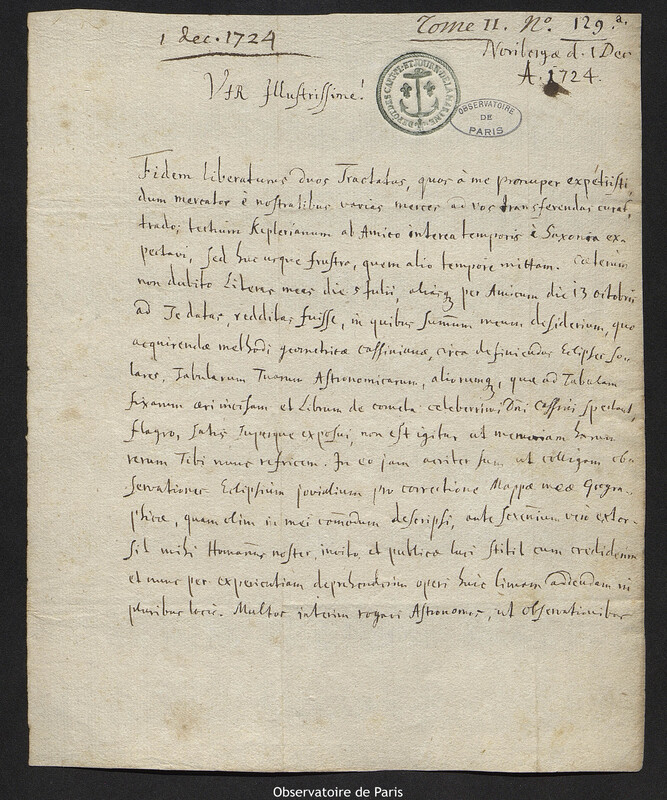 1 dec. 1724
Tome II. No. 129.a.
Noribergæ d. 1 Dec
A. 1724.
DEPOT DES CARTES ET JOURN. DE LA MARINE
OBSERVATOIRE
DE
PARIS
Vir Illustrissime!
Fidem liberaturus duos Tractatus, quos à me pronuper expetiisti,
dum mercator è nostratibus varias merces ad vos transferendas curat,
trado; tertium Keplerianum ab Amico interea temporis è Saxonia ex-
pectavi, sed huc usque frustra, quem alio tempore mittam. Cæterum
non dubito Literas meas die 5 Julii, aliasq per Amicum die 13 octobris
ad Te datas, redditas fuisse, in quibus summum meum desiderium, quo
acquirendæ methodi geometricæ Cassinianæ, circa definiendas Eclipses so-
lares, Tabularum Tuarum Astronomicarum, aliorumq, quæ ad Tabulam
fixarum æri incisam et Librum de cometa celeberrimi Dni Cassini spectant,
flagro, satis superque exposui, non est igitur ut memoriam harum
rerum Tibi nunc refricem. In eo jam acriter sum ut colligam ob-
servationes Eclipsium jovialium pro correctione Mappæ meæ Geogra-
phicæ, quam olim in mei commodum descripsi, ante sexennium vero extor-
sit mihi Homannus noster, invito, et publicæ luci stitit cum crediderim
et nunc per experientiam deprehenderim operi huic limam addendam in
pluribus locis. Multos interim rogavi Astronomos, ut observationibus
Observatoire de Paris